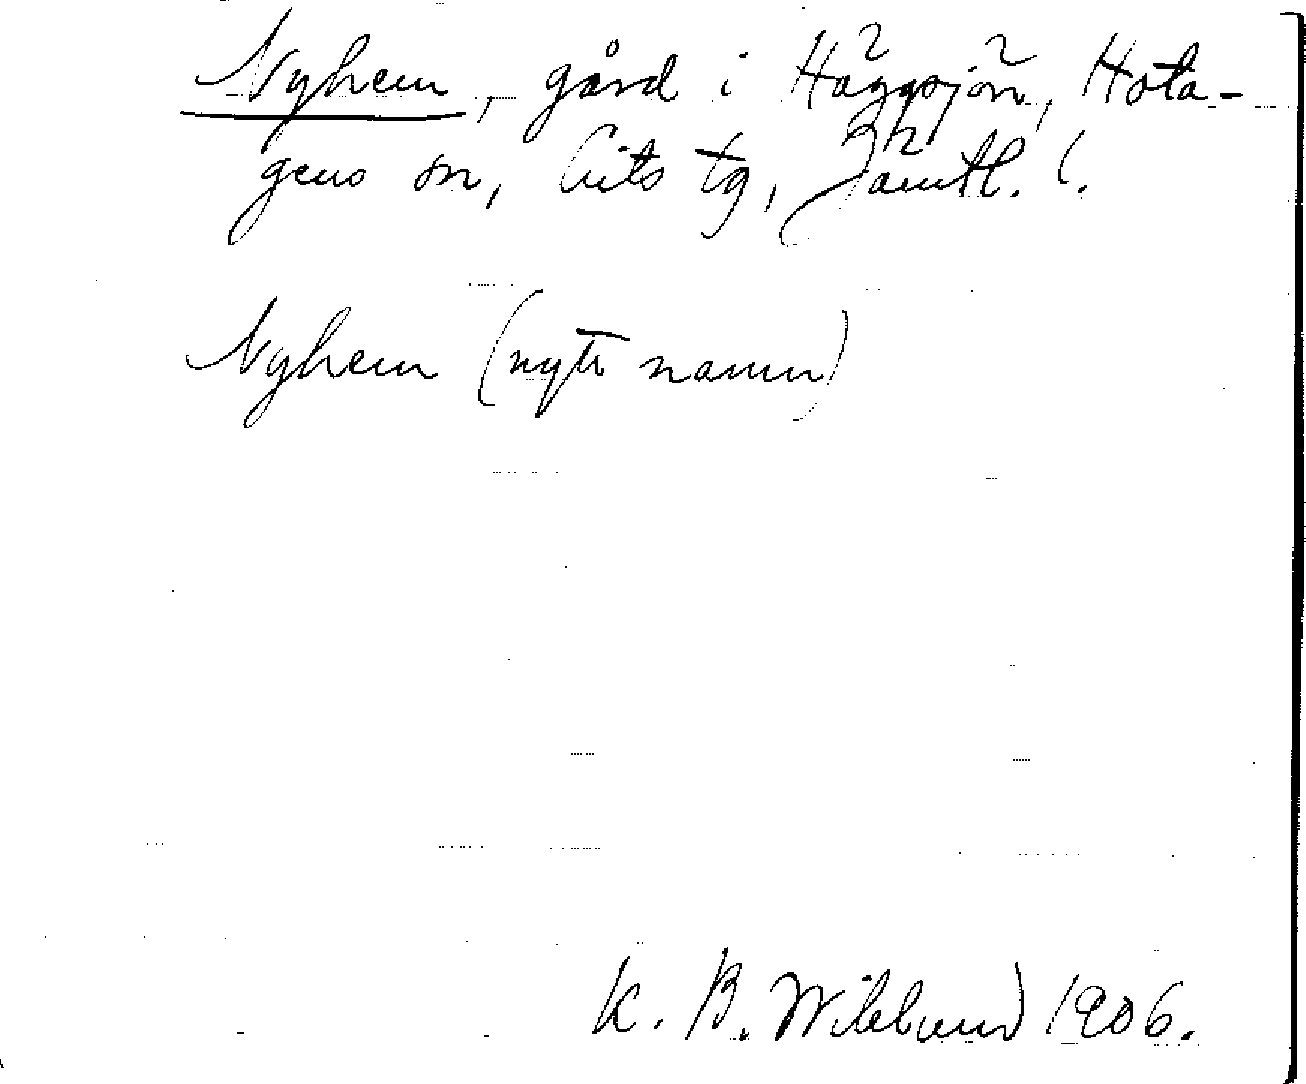 Nyhem, gård i Häggsjön, Hota-
gens sn, Lits tg, Jämtl. l.
Nyhem (nytt namn)
K. B. Wiklund 1906.